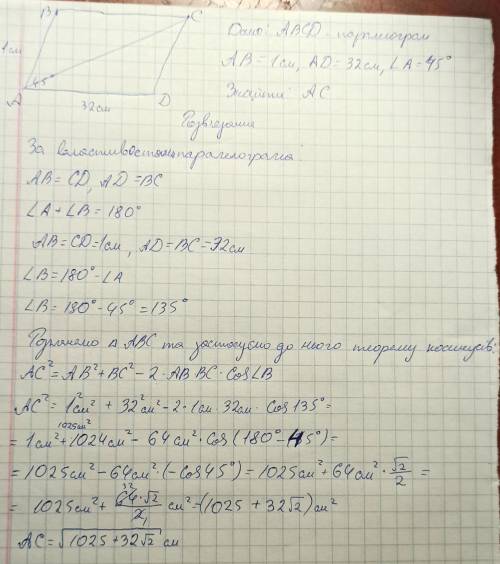 B C
Дано: ABCD - паралелограм
1см
AB = 1см, AD = 32см, ∠A = 45°
45°
Знайти: AC
A D
32см
Розв'язання
За властивостями паралелограма:
AB = CD, AD = BC
∠A + ∠B = 180°
AB = CD = 1см, AD = BC = 32см
∠B = 180° - ∠A
∠B = 180° - 45° = 135°
Розглянемо Δ ABC та застосуємо до нього теорему косинусів:
AC² = AB² + BC² - 2 · AB BC · Cos∠B
AC² = 1²см² + 32²см² - 2 · 1см · 32см · Cos 135° =
1025см²
= 1см² + 1024см² - 64см² · Cos(180° - 45°) =
= 1025см² - 64см² · (-cos45°) = 1025см² + 64см² · √2/2 =
= 1025см² + 64·√2/2 см² = (1025 + 32√2) см²
32 1
AC = √(1025 + 32√2) см